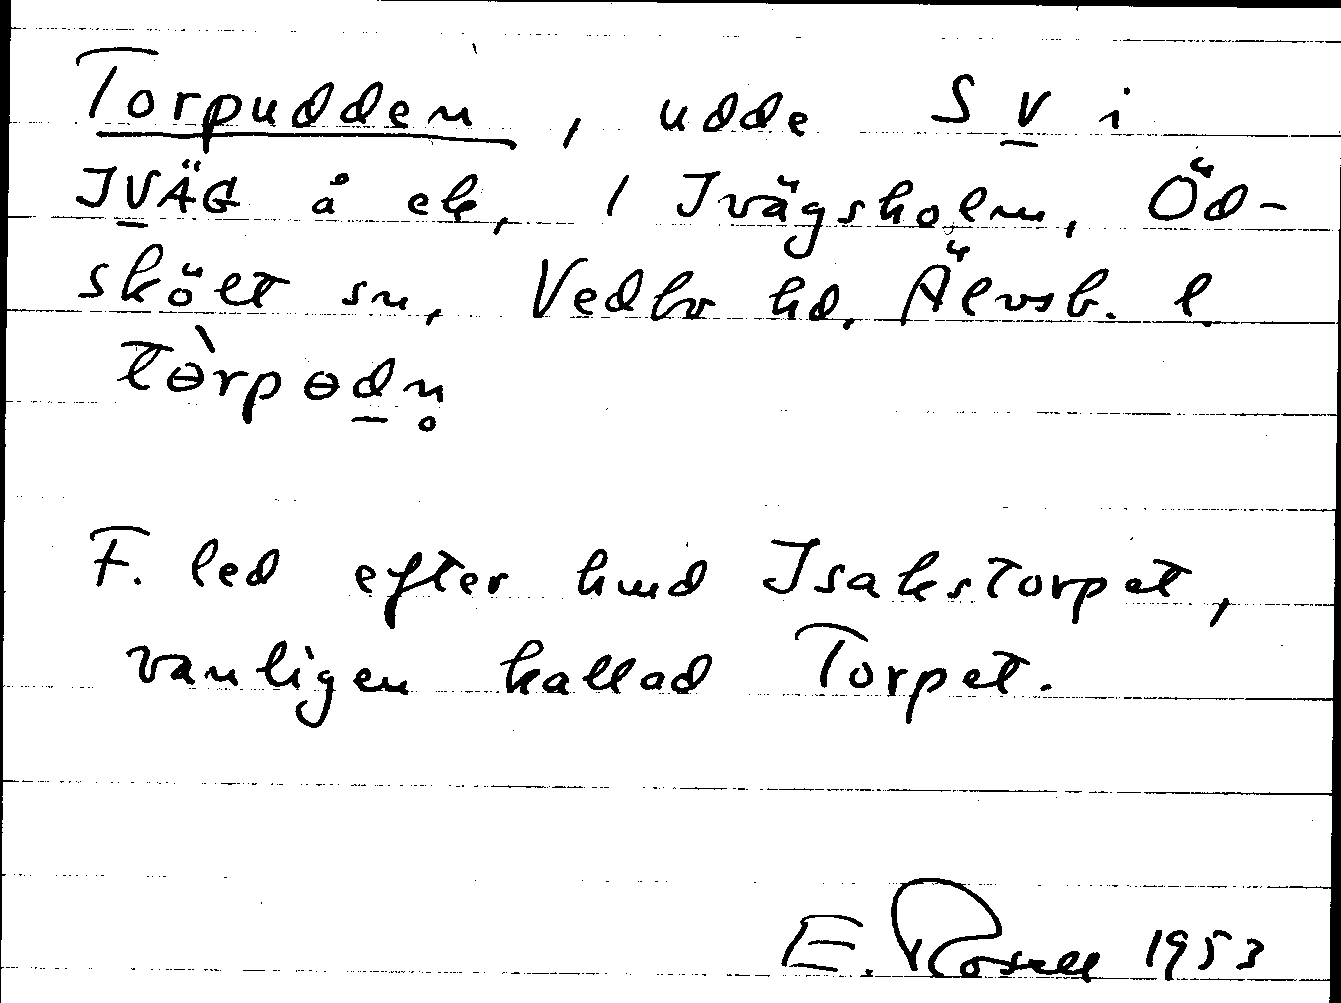 Torpudden, udde SV i
IVÄG å ek, / Ivägsholm, Öd-
skölt sn, Vedbo hd, Älvsb. l.
tɵ̀rpɵdn̥
F. led efter hmd Isakstorpet,
vanligen kallad Torpet.
E. Rosell 1953